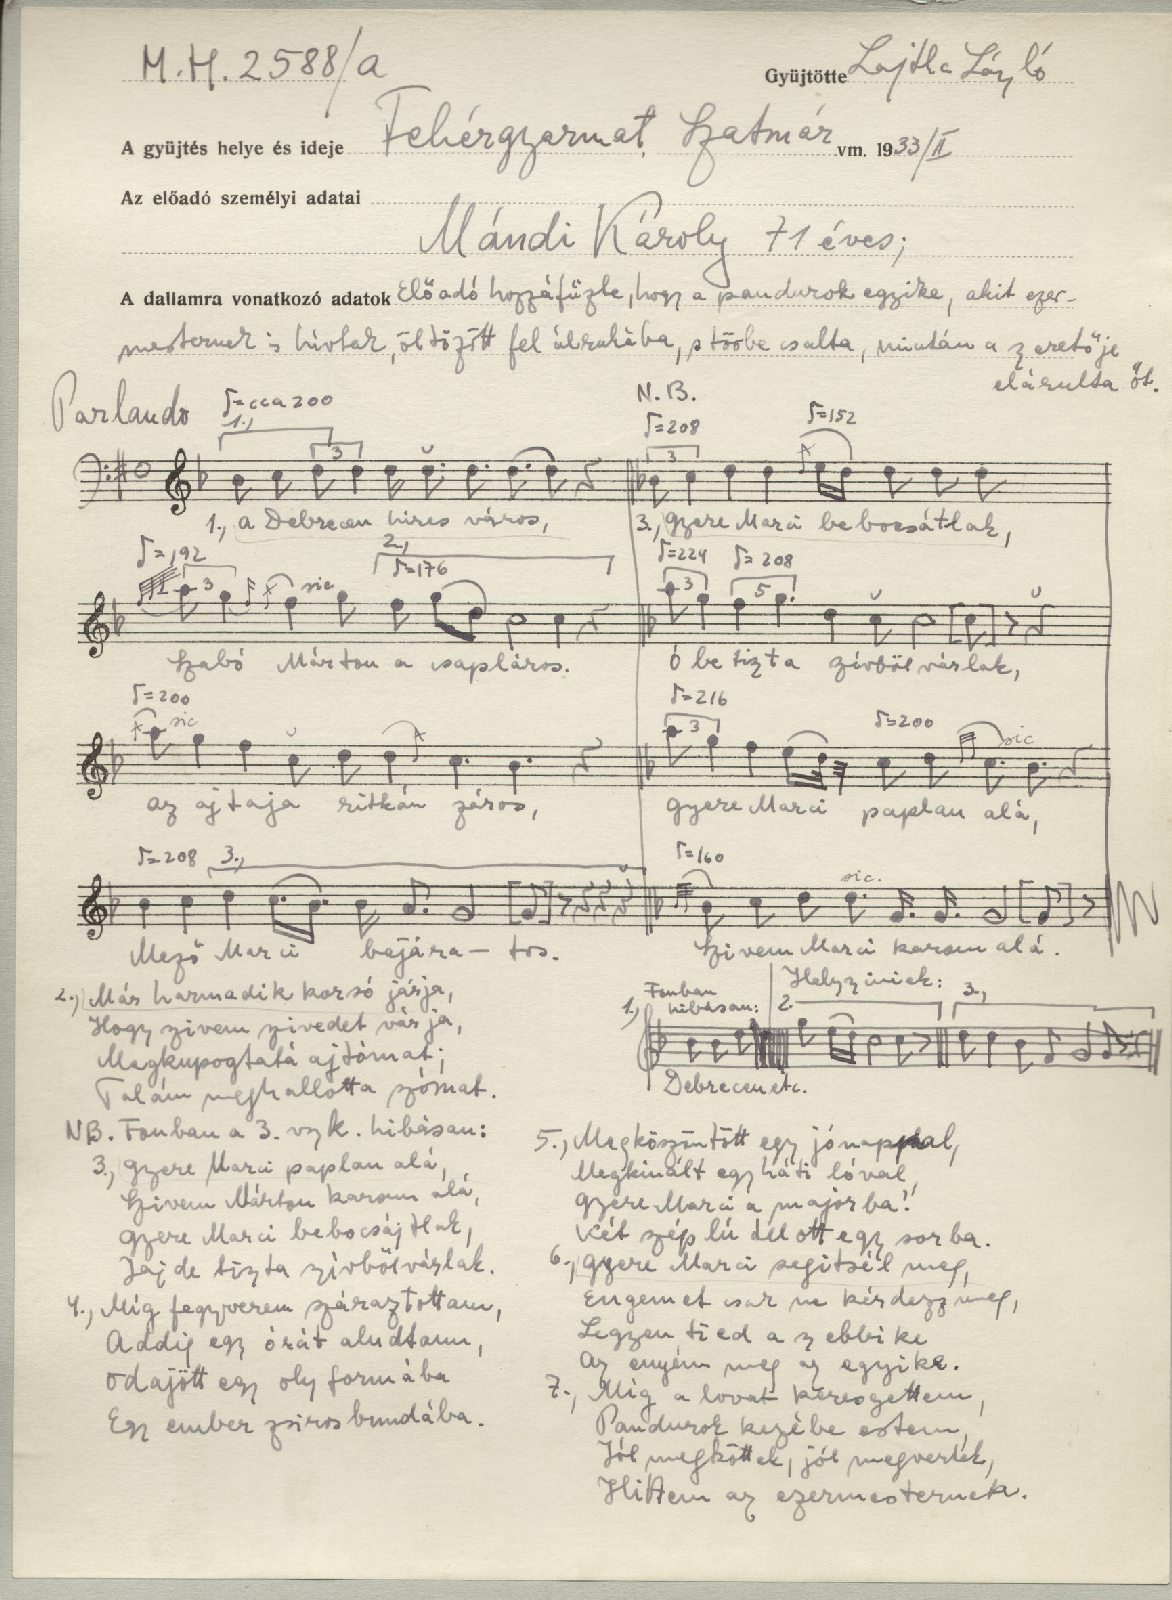 M.H. 2588/a
Gyüjtötte Lajtha László
A gyüjtés helye és ideje Fehérgyarmat, Szatmár vm. 1933/II
Az előadó személyi adatai
Mándi Károly 71 éves;
A dallamra vonatkozó adatok Előadó hozzáfűzte, hogy a pandurok egyike, akit ezer-
mesternek is hívtak, öltözött fel álruhába, s tőrbe csalta, miután a szeretője
elárulta őt.
Parlando ♪=cca 200 N.B. ♪=208 ♪=152
1., 3 3
1., a Debrecen hires város, 3., Gyere Marci bebocsátlak,
♪=192 2., ♪=176 ♪=224 ♪=208
3 sic 3 5
Szabó Márton a csapláros. Ó be tiszta szívből várlak,
♪=200 sic ♪=216 3 ♪=200 sic
az ajtaja ritkán záros, gyere Marci paplan alá,
♪=208 3., ♪=160 sic.
Mező Marci bejára- tos. Szivem Marci karom alá.
2., Már harmadik korsó járja,
Hogy szivem szivedet várja,
Megkupogtatá ajtómat;
Talám meghallotta szómat.
Helyziniek:
1., Fonban hibásan: 2. 3.,
Debrecen etc.
NB. Fonban a 3. vszk. hibásan:
3., Gyere Marci paplan alá,
Szivem Márton karom alá,
Gyere Marci bebocsájtlak,
Jaj de tiszta szívből várlak.
4., Míg fegyverem száraztottam,
Addig egy órát aludtam,
Odajött egy oly formába
Egy ember zsiros bundába.
5., Megköszöntött egy jónappal,
Megkinált egy háti lóval,
Gyere Marci a majorba!
Két szép ló áll ott egy sorba.
6., Gyere Marci segitsél meg,
Engemet csak ne kérdezz meg,
Legyen tied a szebbike
Az enyém meg az egyike.
7., Míg a lovat keresgettem,
Pandurok kezébe estem,
Jól megköttek, jól megvertek,
Hittem az ezermesternek.